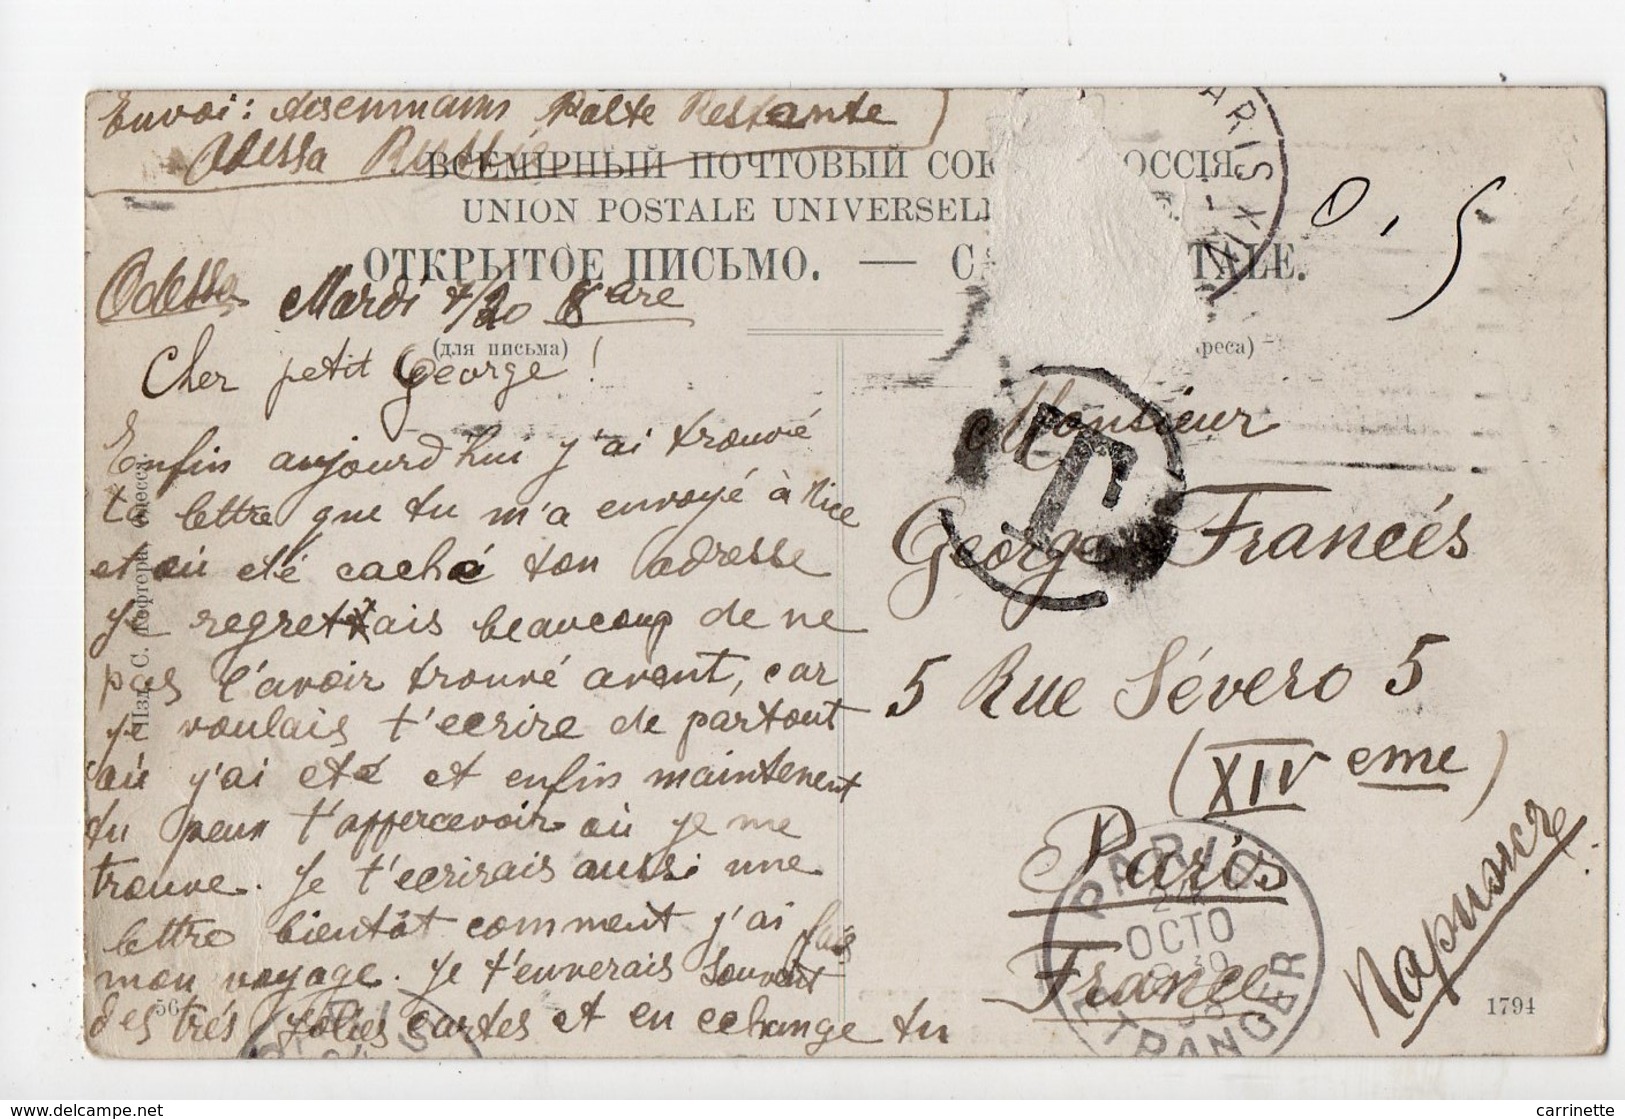 Envoi: Aisenmann Poste Restante
Odessa Russie
ВСЕМІРНЫЙ ПОЧТОВЫЙ СОЮ ОССІЯ
UNION POSTALE UNIVERSELL
ОТКРЫТОЕ ПИСЬМО. — C TALE.
(для письма)
реса)
Odessa Mardi 7/20 8bre
Cher petit George!
Enfin aujourd'hui j'ai trouvé
ta lettre que tu m'a envoyé à Nice
et où eté caché ton adresse
Je regrettais beaucoup de ne
pas l'avoir trouvé avent, car
je voulais t'ecrire de partout
où j'ai eté et enfin maintenent
tu peux t'appercevoir où je me
trouve. Je t'ecrirais aussi une
lettre bientôt comment j'ai fais
mon voyage. Je t'enverais souvent
des très jolies cartes et en echange tu
0,5
T
Monsieur
George Francés
5 Rue Sévero 5
(XIV eme)
Paris
France
Парижъ
PARIS XIV
PARIS
24
OCTO
ETRANGER
Изд. С. Кофтера, Одесса.
56
1794
carrinette